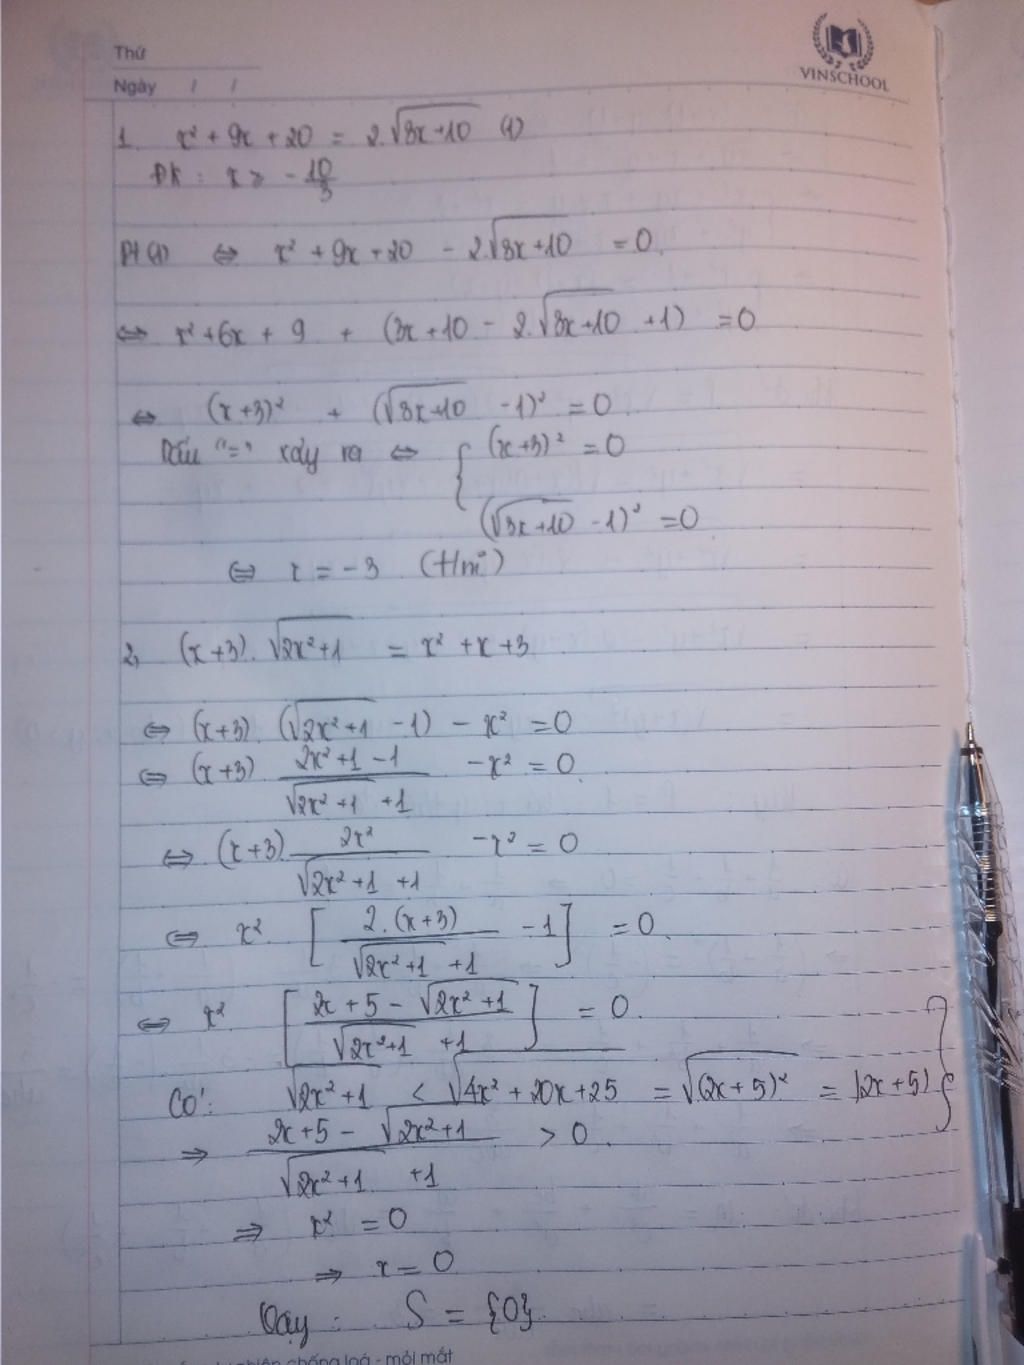 Thứ
Ngày / /
VINSCHOOL
1. x² + 9x + 20 = 2.√(3x+10) (1)
ĐK : x ≥ -10/3
Pt (1) ⇔ x² + 9x + 20 - 2.√(3x+10) = 0.
⇔ x² + 6x + 9 + (3x+10 - 2.√(3x+10) + 1) = 0
⇔ (x+3)² + (√(3x+10) - 1)² = 0
Dấu "=" xảy ra ⇔ { (x+3)² = 0
(√(3x+10) - 1)² = 0
⇔ x = -3 (t/m)
2, (x+3).√(2x²+1) = x² + x + 3
⇔ (x+3).(√(2x²+1) - 1) - x² = 0
⇔ (x+3) (2x²+1-1)/(√(2x²+1) + 1) - x² = 0
⇔ (x+3) 2x²/(√(2x²+1) + 1) - x² = 0
⇔ x² [ 2.(x+3)/(√(2x²+1) + 1) - 1 ] = 0.
⇔ x² [ (2x+5 - √(2x²+1))/(√(2x²+1) + 1) ] = 0.
Có: √(2x²+1) < √(4x²+20x+25) = √((2x+5)²) = |2x+5| }
⇒ (2x+5 - √(2x²+1))/(√(2x²+1) + 1) > 0.
⇒ x² = 0
⇒ x = 0
Vậy : S = {0}
chống loá - mỏi mắt